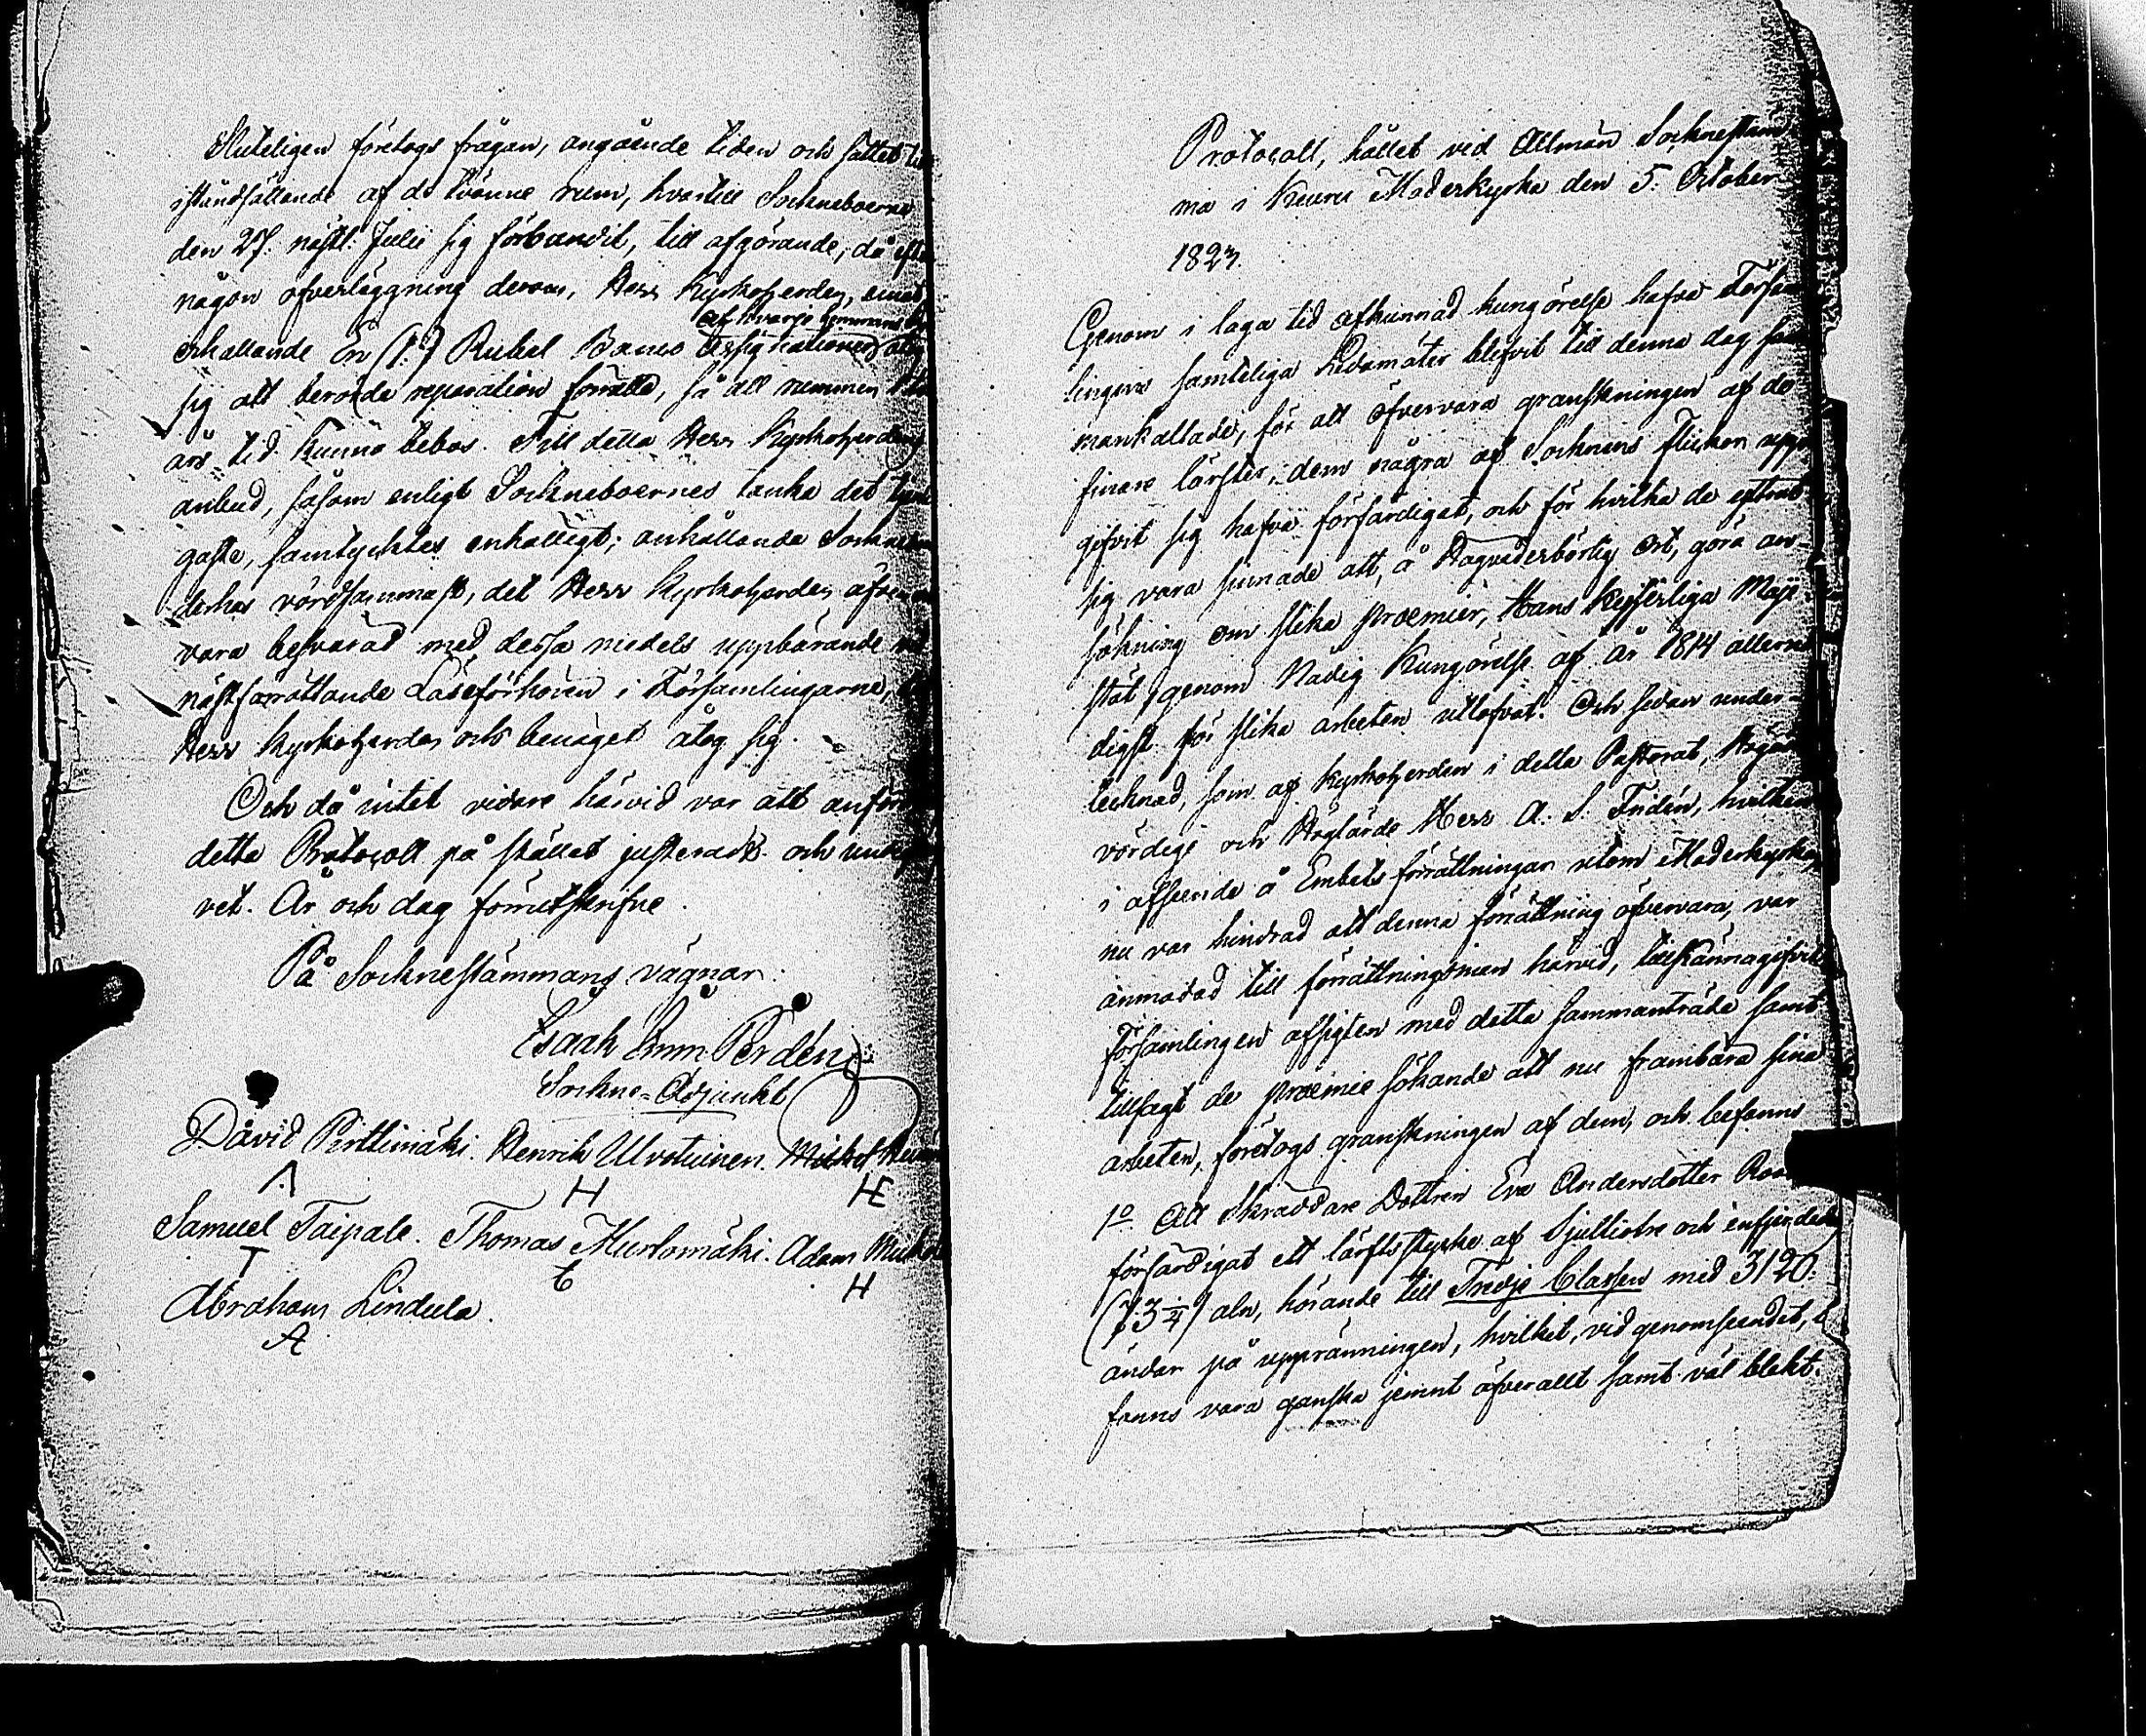 Sluteligen företogs frågan, angående tiden och sättet till
iståndsättande af de tvänne rum, hvartill Sockneboerne
den 27. nästl. Julii sig förbundit, till afgörande, då efter
någon öfverläggning derom, Herr Kyrkoherden, emot
af hvarje hemman
erhållande En (1.) Rubel Banco Assignationer åtog
sig att berörde reparation förrätta, så att rummen
års tid kunna bebos. Till detta Herr Kyrkoherdens
anbud, såsom enligt Sockneboernes tanka det
gaste, samtycktes enhälligt; anhållande Sockneboerne
derhos vördsammast, det Herr Kyrkoherden äfven
vara besvärad med dessa medels uppbärande vid
nästförrättande Läseförhören i Församlingarne,
Herr Kyrkoherden ock benäget åtog sig.
Och då intet vidare härvid var att anföra
detta Protocoll på stället justerades och
vet. År och dag förutskrifne.
På Socknestämmans vägnar:
Isaak Emm Perdén
Sockne-Adjunkt
David Pirttimäki. Henrik Ulvotuinen. Michel
Λ H HE
Samuel Taipale. Thomas Murtomäki. Adam
T t H
Abraham Lindula.
A
Protocoll, hållet vid Allmän Socknestäm-
ma i Keuru Moderkyrka den 5. October
1823.
Genom i laga tid afkunnad kungörelse hafva Försam-
lingens samteliga Ledamöter blifvit till denna dag sam-
mankallade, för att öfvervara granskningen af de
finare lärfter, dem några af Socknens flickor uppe-
gifvit sig hafva förfärdigat, och för hvilka de yttrat
sig vara sinnade att, å Hagvederbörlig Ort, göra an-
sökning om slika præmier, Hans Kejserliga Maje-
stät genom Nådig Kungörelse af år 1814 allernå-
digst för slika arbeten utlofvat. Och sedan under-
tecknad, som af Kyrkoherden i detta Pastorat, Högäre-
vördige och Höglärde Herr A. S. Indén, hvilken
i afseende å Embetsförrättningar utom Moderkyrkan
nu var hindrad att denna förrättning öfvervara, var
anmodad till förrättningsman härvid, tillkännagifvit
Församlingen afsigten med detta sammanträde samt
tillsagt de præmie sökande att nu frambära sina
arbeten, företogs granskningen af dem, och befanns
1o. Att Skräddare Dottren Eva Andersdotter
förfärdigat ett lärftsstycke af Sjuttiotre och enfjerdedels
(73 1/4) aln, hörande till Tredje Classen med 3120.
ändar på uppränningen, hvilket, vid genomseendet, be-
fanns vara ganska jemnt öfverallt samt väl blekt.